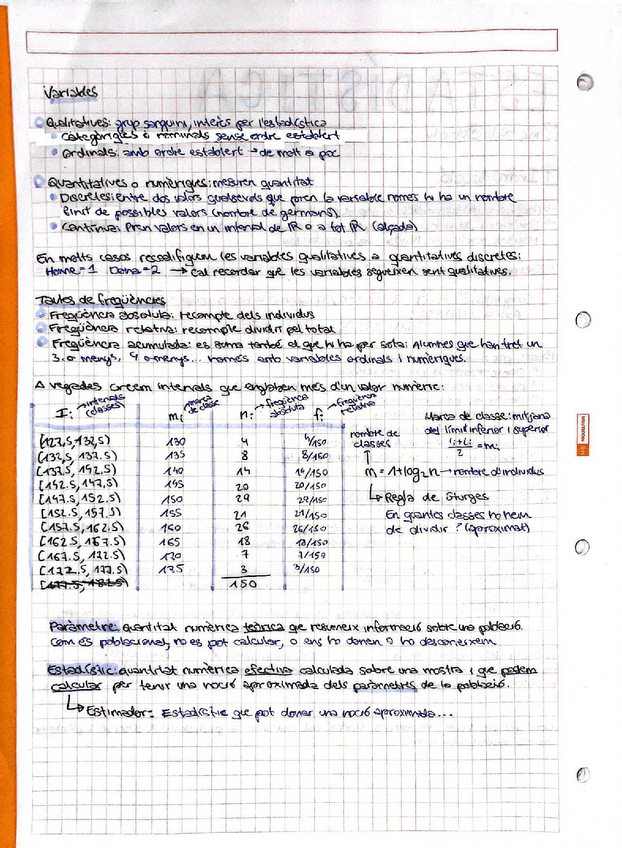 Variables
Qualitatives: grup sanguini, interès per l'estadística
Categòriques o nominals sense ordre establert
Ordinals: amb ordre establert → de molt a poc
Quantitatives o numèriques: mesuren quantitat
Discretes: entre dos valors qualsevols que pren la variable només hi ha un nombre
finit de possibles valors (nombre de germans).
Contínua: Pren valors en un interval de ℝ o a tot ℝ (alçada)
En molts casos recodifiquem les variables qualitatives a quantitatives discretes:
Home = 1 Dona = 2 → cal recordar que les variables segueixen sent qualitatives.
Taules de freqüències
Freqüència absoluta: recompte dels individus
Freqüència relativa: recompte dividit pel total
Freqüència acumulada: es suma també el que hi ha per sota: Alumnes que han tret un
3 o menys, 4 o menys... només amb variables ordinals i numèriques.
A vegades creem intervals que engloben més d'un valor numèric:
I: → intervals (classes) mi → marca de classe ni → freqüència absoluta fi → freqüència relativa
[127.5, 132.5) 130 4 4/150
[132.5, 137.5) 135 8 8/150
[137.5, 142.5) 140 14 14/150
[142.5, 147.5) 145 20 20/150
[147.5, 152.5) 150 29 29/150
[152.5, 157.5) 155 21 21/150
[157.5, 162.5) 160 26 26/150
[162.5, 167.5) 165 18 18/150
[167.5, 172.5) 170 7 7/150
[172.5, 177.5) 175 3 3/150
[177.5, 182.5) 150
Marca de classe: mitjana
del límit inferior i superior
(li+Li)/2 = mi
nombre de
classes
m = 1 + log₂ n → nombre d'individus
Regla de Sturges
En quantes classes ho hem
de dividir? (aproximat)
Paràmetre: quantitat numèrica teòrica que resumeix informació sobre una població.
Com és poblacional, no es pot calcular, o ens ho donen o ho desconeixem.
Estadístic: quantitat numèrica efectiva calculada sobre una mostra i que podem
calcular per tenir una noció aproximada dels paràmetres de la població.
Estimador: Estadístic que pot donar una noció aproximada...